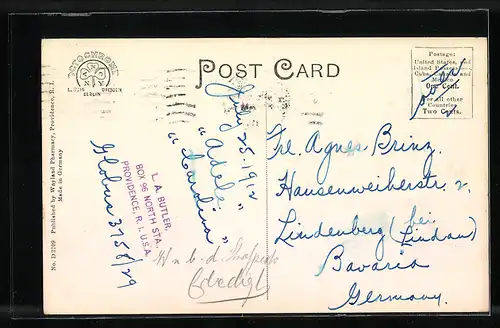 POST CARD
PHOTOCHROME
LEIPZIG DRESDEN
BERLIN
Postage:
United States, and
Island Possessions,
Cuba, Canada and
Mexico
One Cent.
For all other
Countries
Two Cents.
No. D3299 Published by Wayland Pharmacy, Providence, R. I.
Made in Germany
July 25. 1912
"Adele"
"Cardina"
L. A. BUTLER,
BOX 96 NORTH STA.
PROVIDENCE, R. I., U.S.A.
Globus 3758/29
Erledigt
Frl. Agnes Brinz.
Hausenweiherstr. 2.
Lindenberg (bei
Lindau)
Bavaria
Germany.